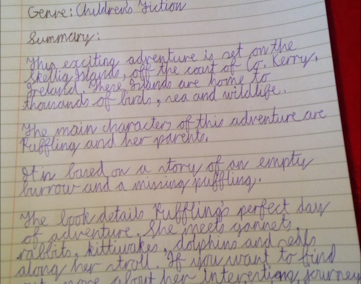 Genre: Children's Fiction
Summary:
This exciting adventure is set on the
Skellig Islands, off the coast of Co. Kerry,
Ireland. These Islands are home to
thousands of birds, sea and wildlife.
The main characters of this adventure are
Puffling and her parents.
It is based on a story of an empty
burrow and a missing puffling.
The book details Puffling's perfect day
of adventure. She meets gannets,
rabbits, kittiwakes, dolphins and seals
along her stroll. If you want to find
out more about her interesting journey